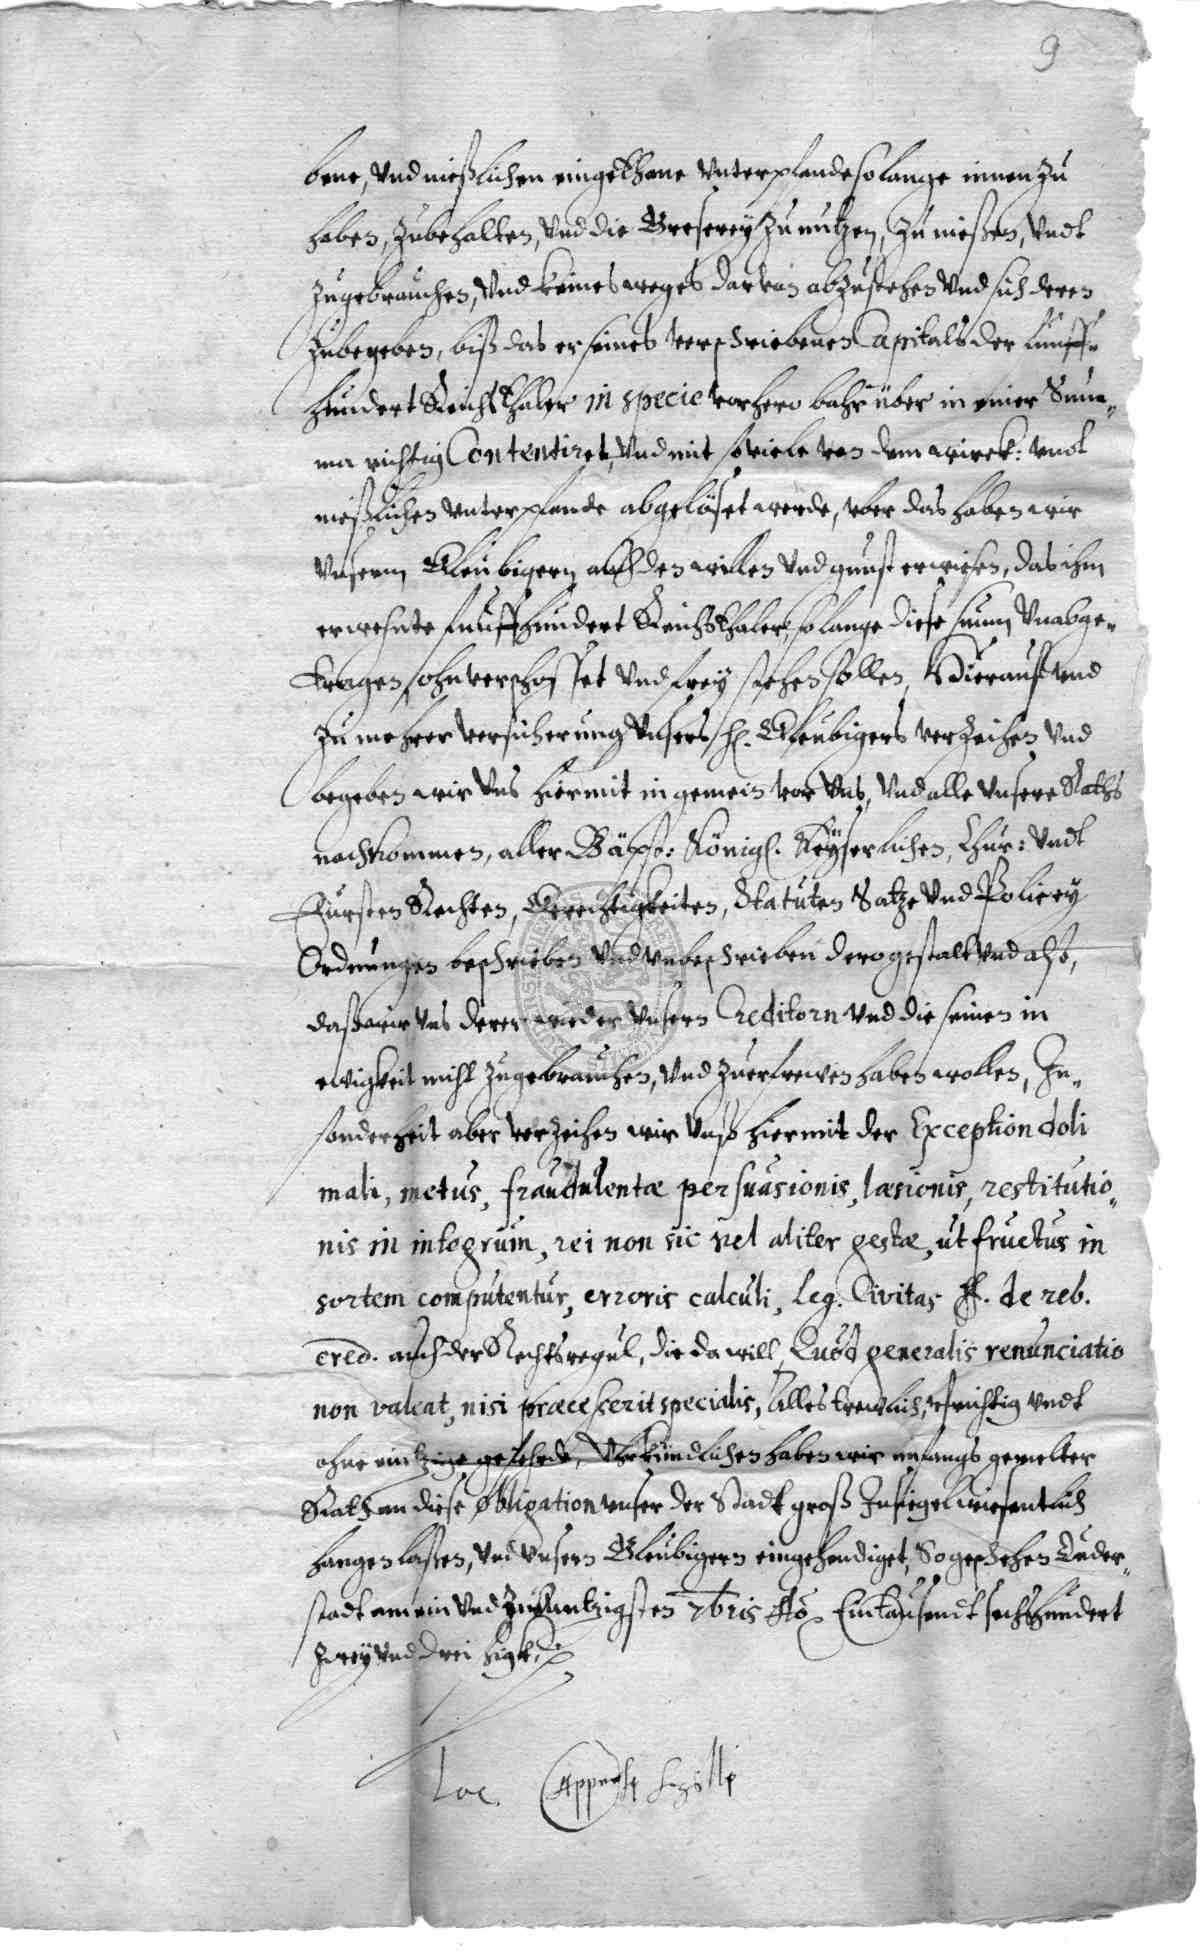 9
bene, vnd nießlichen eingethane vnterpfande so lange innen zu
haben, zubehalten, vnd die Greserey zu nutzen, zu nießen, vndt
zugebrauchen, vnd keines weges daruon abzustehen vnd sich deren
zubegeben, biß das er seines verschriebenen Capitals der funff-
hundert Reichsthaler in specie vorhero bahr über in einer Sum-
ma richtig Contentiret, vnd mit soviele von dem wirck: vndt
nießlichen vnterpfande abgelöset werde, vber das haben wir
vnserm Gleubigern auch den willen vnd gunst erwiesen, das ihm
erwehnte funffhundert Reichsthaler, so lange diese summ vnabge-
tragen, ohnverschosset vnd frey stehen sollen, Hierauff vnd
zu mehrer versicherung vnsers H. Gleubigers verzeihen vnd
begeben wir vns hiermit in gemein vor vns, vnd alle vnsere Raths
nachkommen, aller Bäpst: Königl. Keyserlichen, Chur: vndt
Fursten Rechten, Gerechtigkeiten, Statuten Satze vnd Policey
Ordnungen beschrieben vnd vnbeschrieben dero gestalt vnd also,
daß wir vns derer wieder vnsern Creditorn vnd die seinen in
ewigkeit nicht zugebrauchen, vnd zuerfrewen haben wollen, In-
sonderheit aber verzeihen wir vnß hiermit der Exception doli
mali, metus, fraudulentæ persuasionis, læsionis, restitutio-
nis in integrum, rei non sic vel aliter gestæ, ut fructus in
sortem computentur, erroris calculi, Leg. Civitas ff. de reb.
cred. auch der Rechtsregul, die da will, Quod generalis renunciatio
non valeat, nisi præcesserit specialis, Alles trewlich, vfrichtig vndt
ohne eintzige gefehrde, Uhrkundlichen haben wir anfangs gemelter
Rath an diese Obligation vnser der Stadt groß Insiegel wiesentlich
hangen laßen, vnd vnsern Gleubigern eingehendiget, So geschehen Duder-
stadt am ein vnd zwantzigsten 7bris Ao. Eintausendt sechshundert
zwey vnd dreißigk